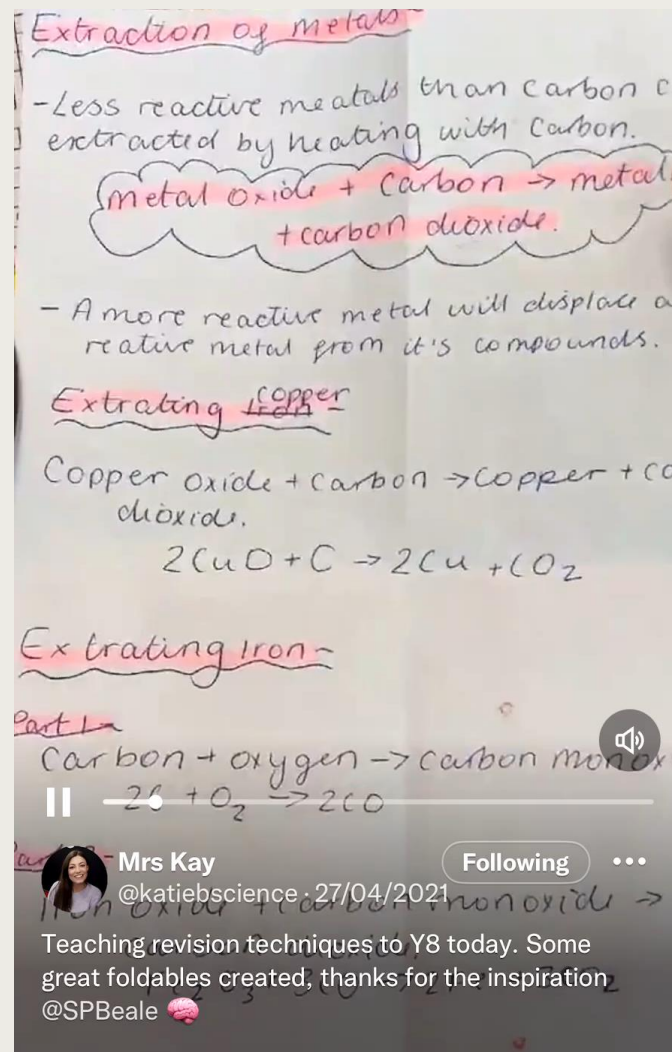 Extraction of metals
- Less reactive meatals than carbon c
extracted by heating with carbon.
metal oxide + carbon → metal
+ carbon dioxide.
- A more reactive metal will displace a
reative metal from it's compounds.
Extrating copper
Copper oxide + carbon → copper + ca
dioxide.
2CuO + C → 2Cu + CO₂
Extrating Iron-
Part 1-
Carbon + oxygen → carbon monox
2C + O₂ → 2CO
Mrs Kay
Following
@katiebscience · 27/04/2021
Iron oxide + carbon monoxide →
Teaching revision techniques to Y8 today. Some
great foldables created, thanks for the inspiration
@SPBeale 🧠